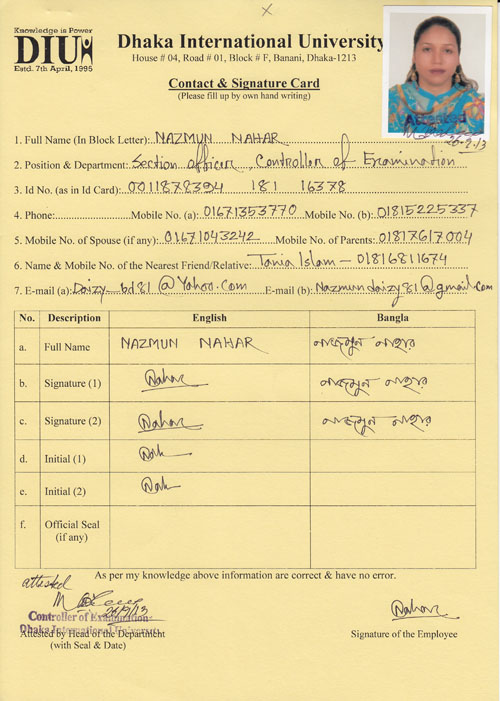 Knowledge is Power
DIU
Estd. 7th April, 1995
Dhaka International University
House # 04, Road # 01, Block # F, Banani, Dhaka-1213
Contact & Signature Card
(Please fill up by own hand writing)
Attested
26.9.13
1. Full Name (In Block Letter): NAZMUN NAHAR
2. Position & Department: Section officer, Controller of Examination
3. Id No. (as in Id Card): 0011878394 181 16378
4. Phone: Mobile No. (a): 01671353770 Mobile No. (b): 01815225337
5. Mobile No. of Spouse (if any): 01671043242 Mobile No. of Parents: 01817617004
6. Name & Mobile No. of the Nearest Friend/Relative: Tania Islam – 01816811674
7. E-mail (a): Daizy_bd81@Yahoo.com E-mail (b): Nazmundaizy81@gmail.com
No. Description English Bangla
a. Full Name NAZMUN NAHAR নাজমুন নাহার
b. Signature (1) Nahar নাজমুন নাহার
c. Signature (2) Nahar নাজমুন নাহার
d. Initial (1) Nah
e. Initial (2) Nah
f. Official Seal
(if any)
As per my knowledge above information are correct & have no error.
attested
26/9/13
Controller of Examination
Dhaka International University
Attested by Head of the Department
(with Seal & Date)
Nahar
Signature of the Employee